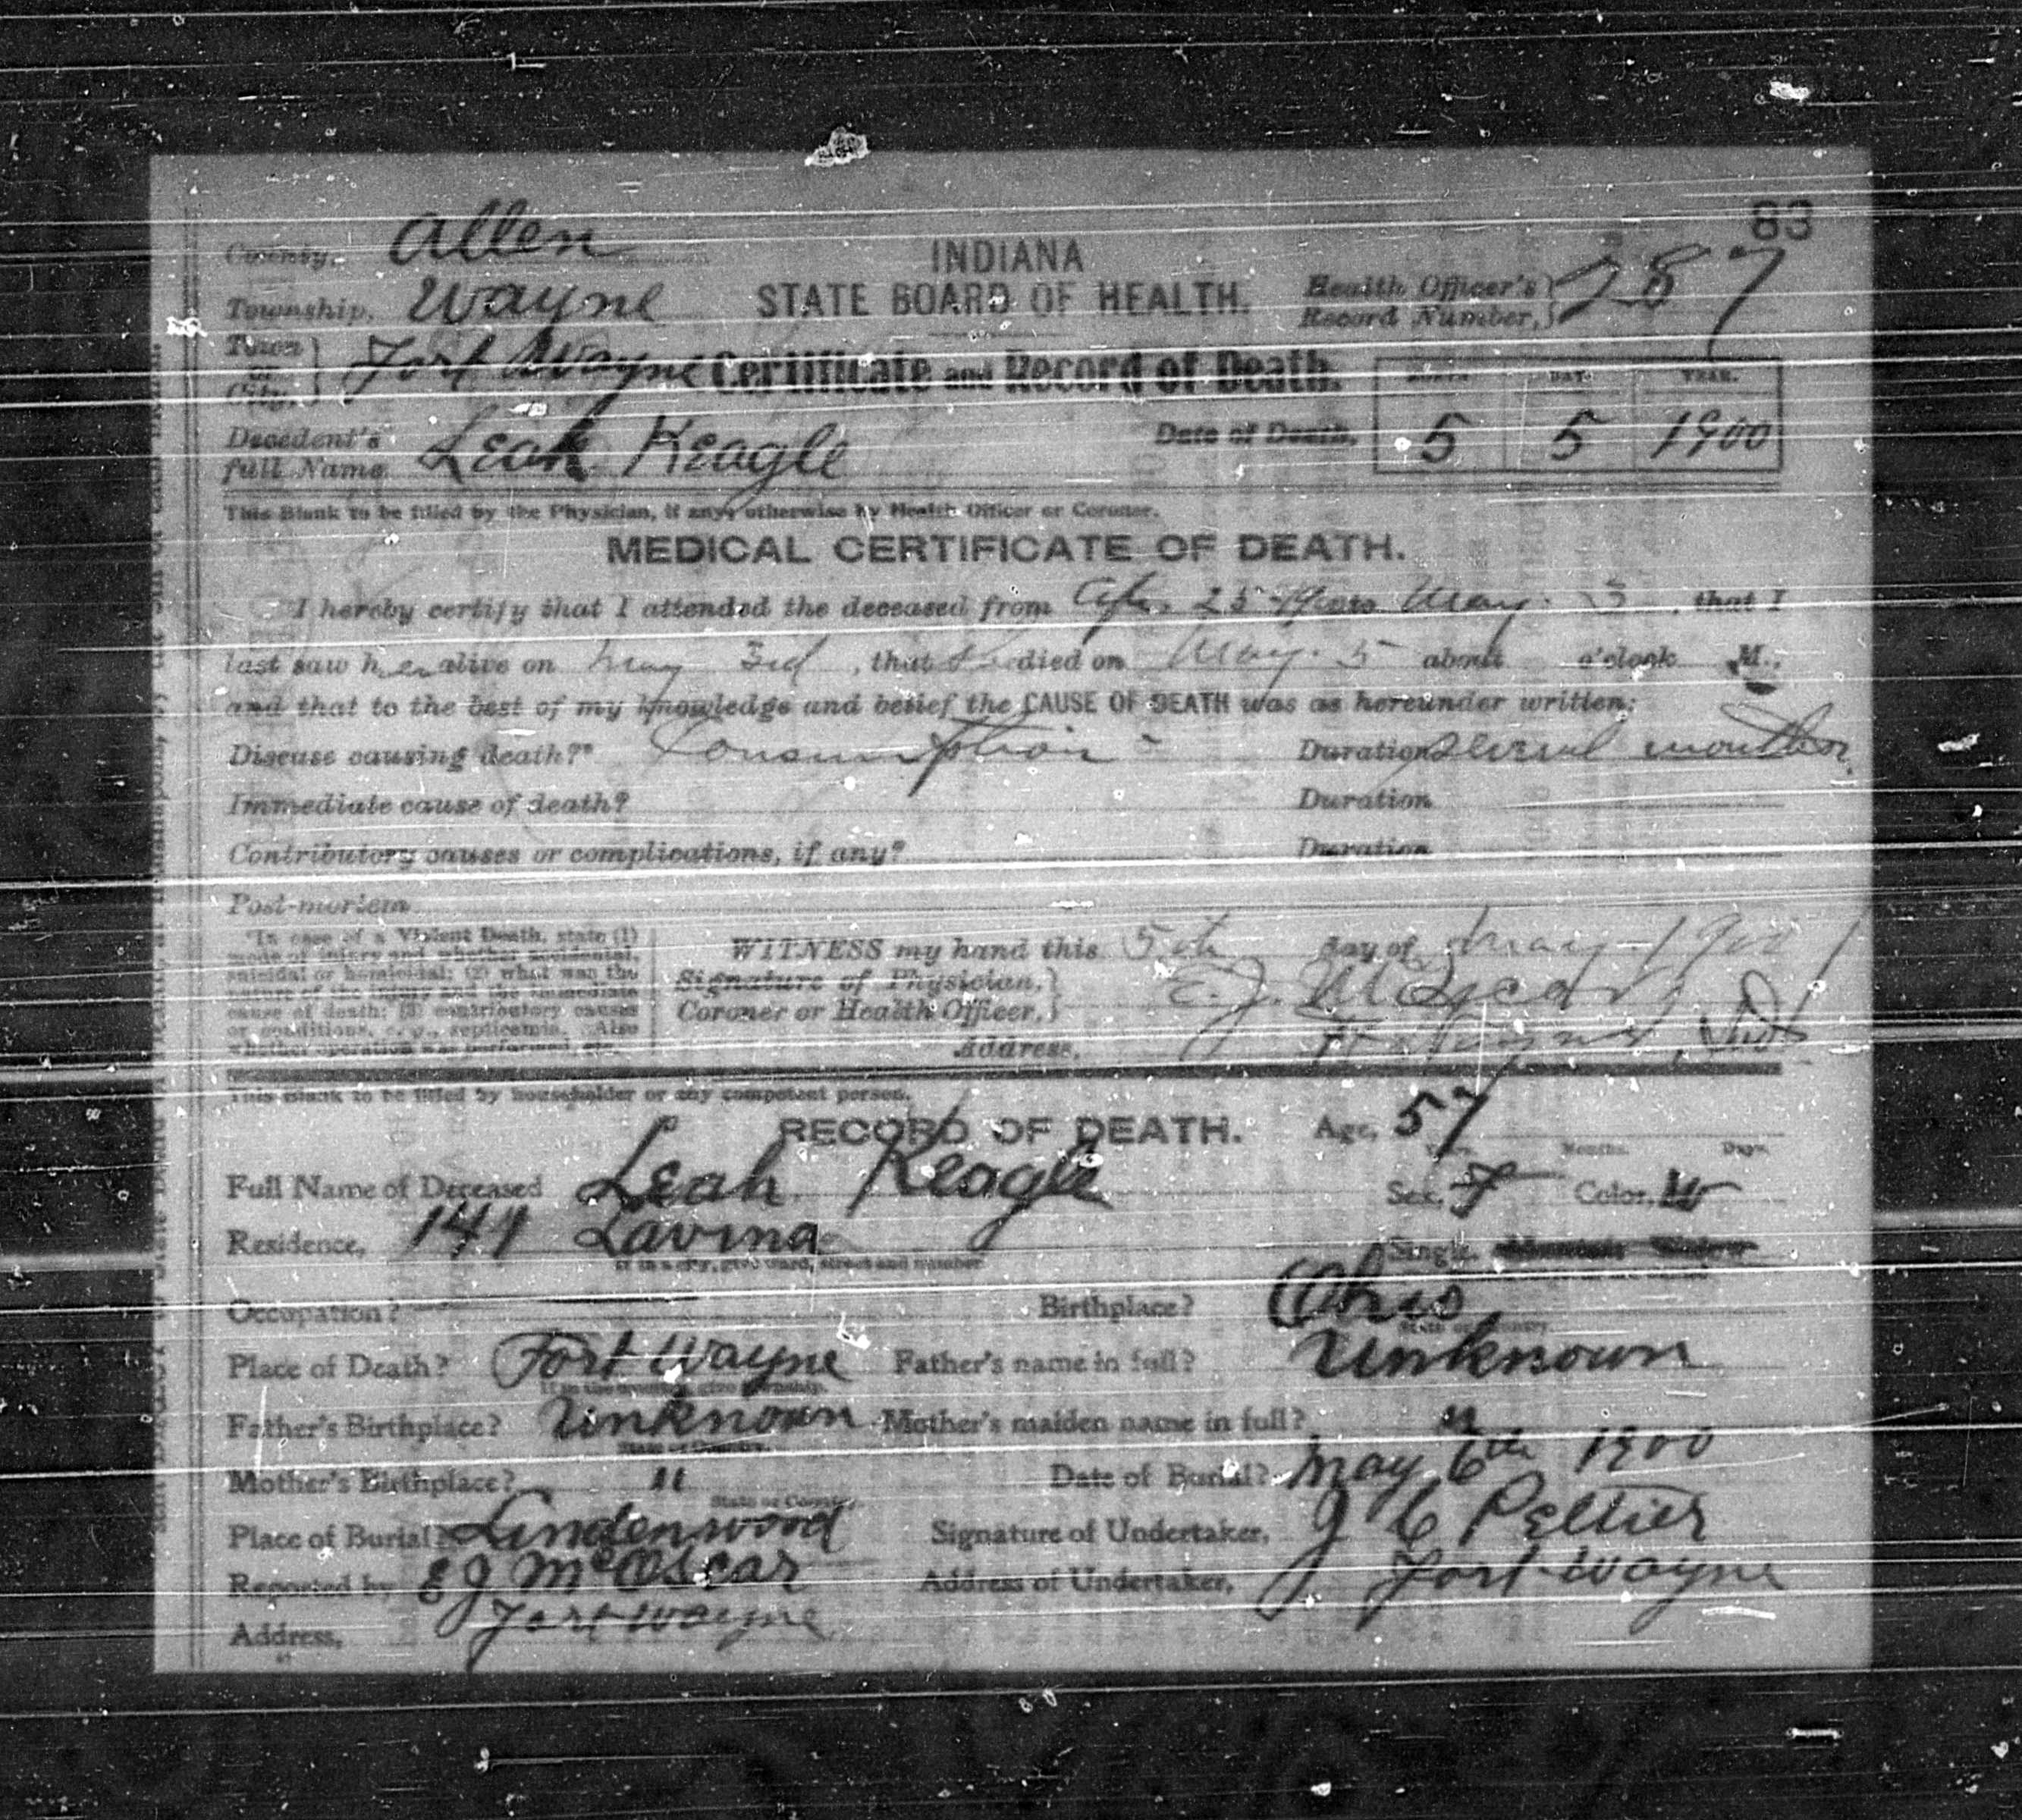 83
County, Allen
INDIANA
Township, Wayne
STATE BOARD OF HEALTH.
Health Officer's Record Number, 287
Town or City, Fort Wayne
Certificate and Record of Death.
MONTH. DAY. YEAR.
Decedent's full Name Leah Keagle
Date of Death, 5 5 1900
This Blank to be filled by the Physician, if any, otherwise by Health Officer or Coroner.
MEDICAL CERTIFICATE OF DEATH.
I hereby certify that I attended the deceased from 25 to May 3, that I
last saw her alive on May 3rd, that She died on May 5 about o'clock M.,
and that to the best of my knowledge and belief the CAUSE OF DEATH was as hereunder written:
Disease causing death?* Consumption Duration several months
Immediate cause of death? Duration
Contributory causes or complications, if any? Duration
Post-mortem
*In case of a Violent Death, state (1)
mode of injury and whether accidental,
suicidal or homicidal; (2) what was the
nature of the injury and the immediate
cause of death; (3) contributory causes
or conditions, e. g., septicemia. Also
whether operation was performed, etc.
WITNESS my hand this 5th day of May 1900
Signature of Physician, Coroner or Health Officer, E. J. McOscar
Address, Ft. Wayne, Ind
This Blank to be filled by householder or any competent person.
RECORD OF DEATH.
Age, 57
Years. Months. Days.
Full Name of Deceased Leah Keagle
Sex, F Color, W
Residence, 141 Lavina
Single,
If in a city, give ward, street and number.
Occupation?
Birthplace? Ohio
State or Country.
Place of Death? Fort Wayne
Father's name in full? Unknown
Father's Birthplace? Unknown
Mother's maiden name in full? "
State or Country.
Mother's Birthplace? "
Date of Burial? May 6th 1900
State or Country.
Place of Burial? Lindenwood
Signature of Undertaker, J C Peltier
Reported by E J McOscar
Address of Undertaker, Fort Wayne
Address, Fort Wayne